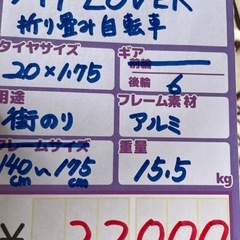 折り畳み自転車
タイヤサイズ
20×1.75
ギア
前輪
後輪 6
用途
街のり
フレーム素材
アルミ
フレームサイズ
140cm〜175cm
重量
15.5 kg
¥